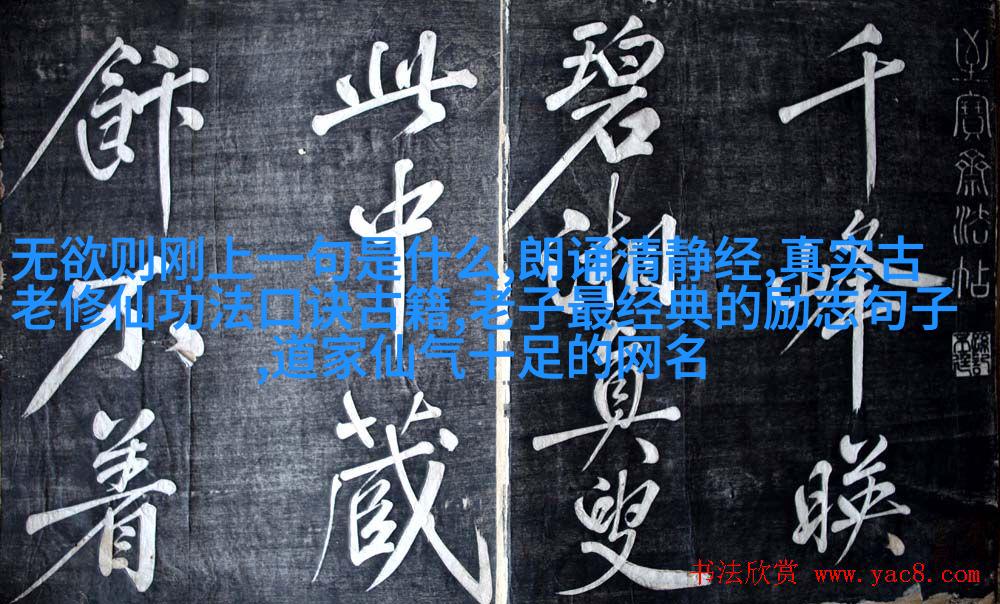 至寶齋法帖
千峰映
碧湘真叟
此中藏
飰不
无欲则刚上一句是什么,朗诵清静经,真实古
老修仙功法口诀古籍,老子最经典的励志句子
,道家仙气十足的网名
书法欣赏 www.yac8.com